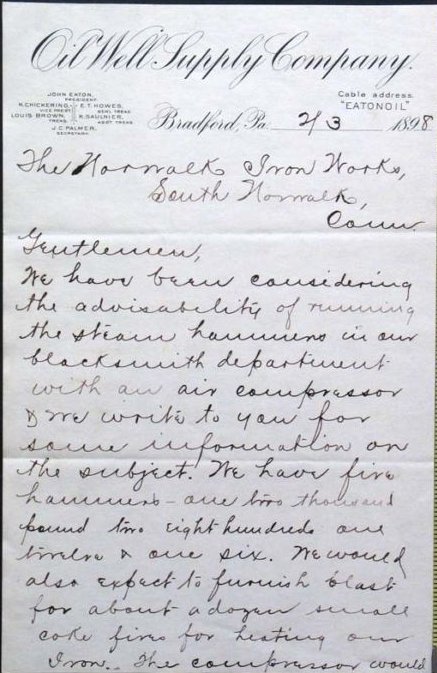 Oil Well Supply Company.
JOHN EATON,
PRESIDENT.
K. CHICKERING, E.T. HOWES,
VICE PREST. GENL TREAS.
LOUIS BROWN, K. SAULNIER,
TREAS. ASST TREAS.
J.C. PALMER,
SECRETARY.
Cable address.
"EATONOIL"
Bradford, Pa. 2/3 1898
The Norwalk Iron Works,
South Norwalk,
Conn.
Gentlemen,
We have been considering
the advisability of running
the steam hammers in our
blacksmith department
with an air compressor
& we write to you for
some information on
the subject. We have five
hammers - one two thousand
pound two eight hundreds one
twelve & one six. We would
also expect to furnish blast
for about a dozen small
coke fires for heating our
Iron. The compressor would